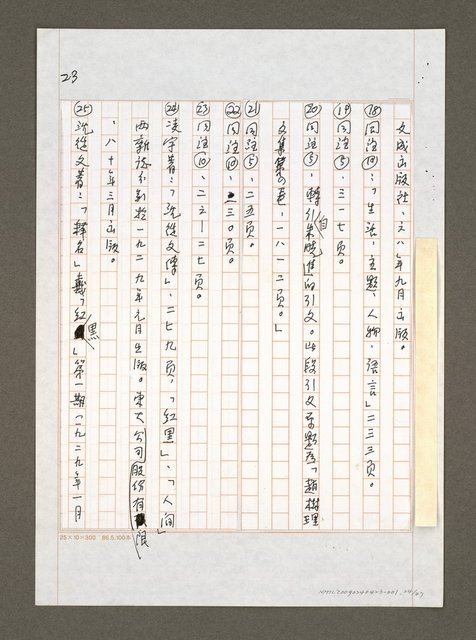 23
文成出版社,六八年九月出版。
⑱同注⑩:「生活,主題,人物,語言」二三三頁。
⑲同注⑤,三一七頁。
⑳同注⑤,轉自朱曉進的引文。此段引文原題為「趙樹理
文集第四卷,一八一二頁。」
㉑同注⑤,二五頁。
㉒同注⑩,二三〇頁。
㉓同注⑩,二六—二七頁。
㉔凌宇著:「沈從文傳」,二七九頁,「紅黑」、「人間」
兩新誌分別於一九二九年元月出版。東大公司股份有限
,八十年三月出版。
㉕沈從文著:「釋名」載「紅黑」第一期(一九二九年一月
25×10=300 86.5.100本